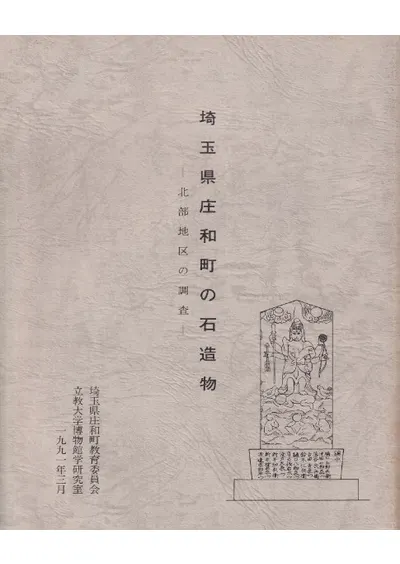 埼玉県庄和町の石造物
―北部地区の調査―
埼玉県庄和町教育委員会
立教大学博物館学研究室
一九九一年三月